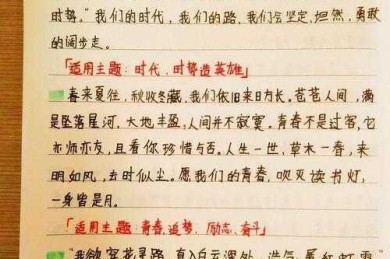 时势。"我们的时代，我们的路，我们会坚定、坦然、勇敢
的阔步走。
「适用主题：时代、时势造英雄」
春来夏往，秋收冬藏，我们依旧来日方长。苍苍人间，满
是坠落星河，大地丰盈，人间并不寂寞。青春不是过客，它
亦师亦友，且看你珍惜与否。人生一世，草木一春，来
明如风，去时似尘。愿我们的青春，吹灭读书灯，
一身皆是月。
「适用主题：青春、追梦、励志、奋斗」
"我欲穿花寻路，直入白云深处，浩气展虹霓